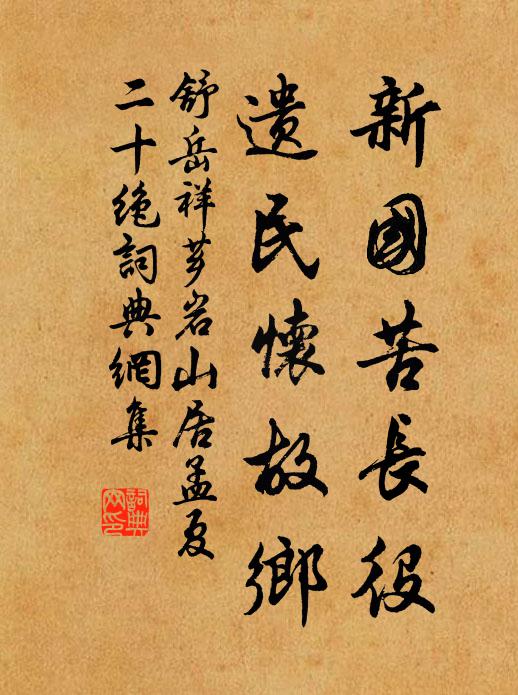 新國苦長役
遺民懷故鄉
舒岳祥芗岩山居孟夏
二十绝詞典網集
詞典
网印